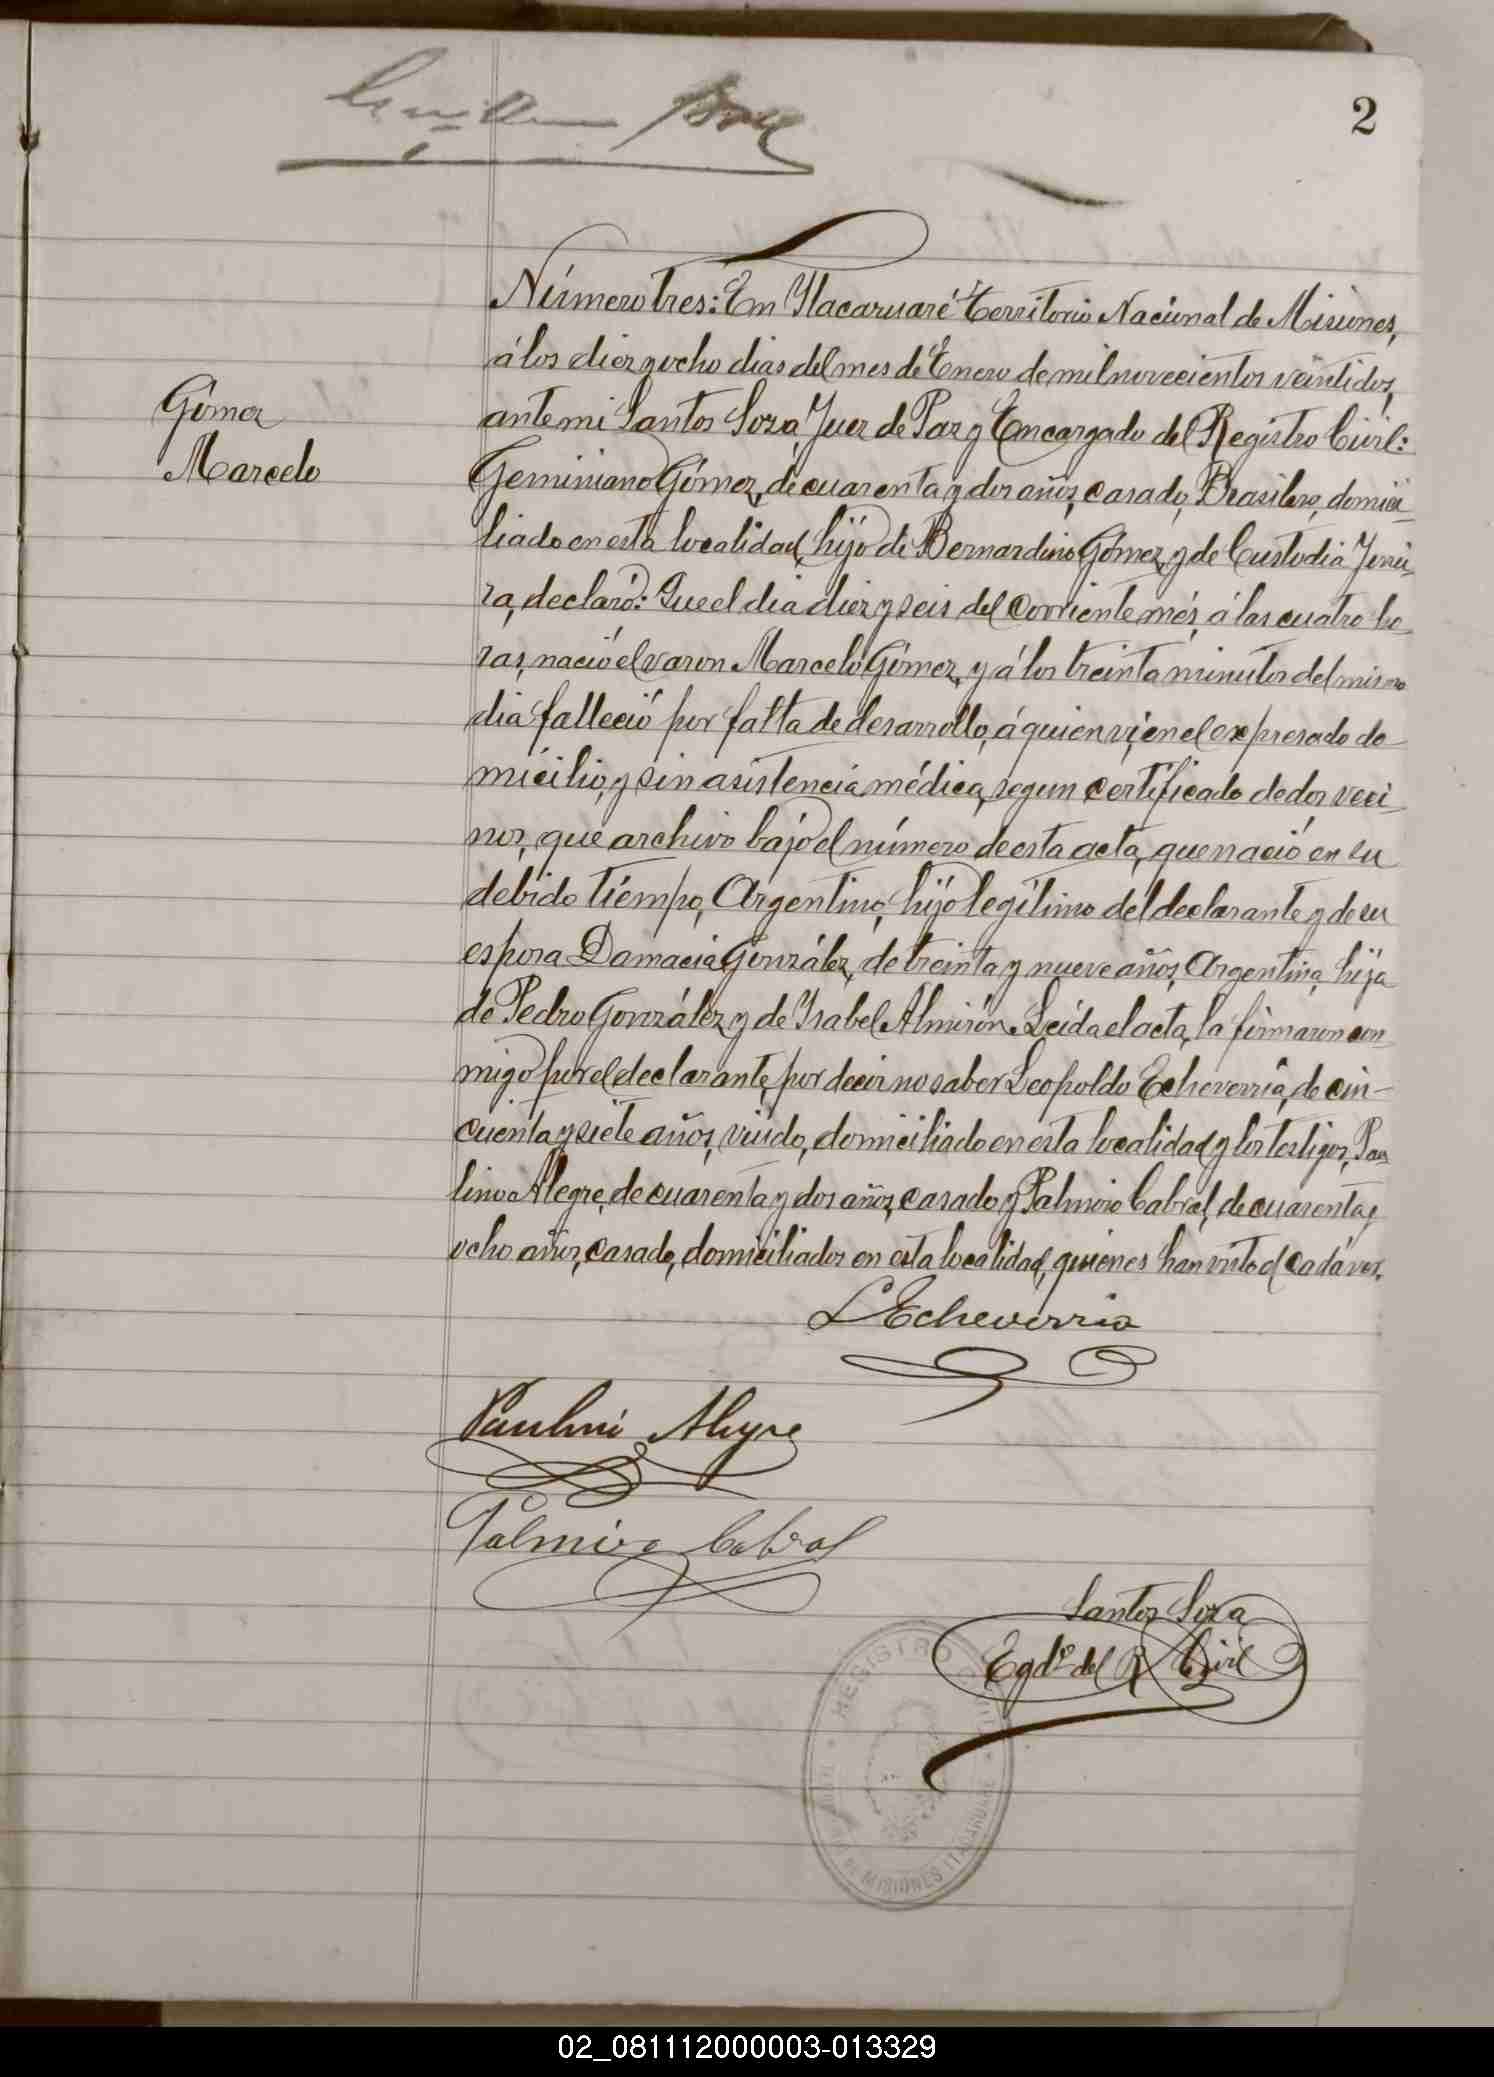 2
Número tres: En Ytacaruaré Territorio Nacional de Misiones,
á los diez y ocho dias del mes de Enero de mil novecientos veintidos,
Gómez
ante mi Santos Soza, Juez de Paz y Encargado del Registro Civil:
Marcelo
Geminiano Gómez, de cuarenta y dos años, casado, Brasilero, domici-
liado en esta localidad, hijo de Bernardino Gómez y de Custodia
ra, declaró: Que el dia diez y seis del corriente més, á las cuatro ho-
ras, nació el varon Marcelo Gómez, y á los treinta minutos del mismo
dia falleció por falta de desarrollo, á quien ví, en el expresado do-
micilio, y sin asistencia médica, segun certificado de dos veci-
nos, que archivo bajo el número de esta acta, que nació en su
debido tiempo, Argentino, hijo legítimo del declarante y de su
esposa Damacia González, de treinta y nueve años, Argentina, hija
de Pedro González y de Ysabel Almirón. Leida el acta, la firmaron con-
migo por el declarante, por decir no saber Leopoldo Echeverría, de cin-
cuenta y siete años, viudo, domiciliado en esta localidad y los testigos, Pau
lino Alegre, de cuarenta y dos años, casado y Palmiro Cabral, de cuarenta y
ocho años, casado, domiciliados en esta localidad, quienes han visto el cadáver.
L Echeverria
Paulino Alegre
Palmiro Cabral
Santos Soza
Egdo. del R. Civil
REGISTRO CIVIL
DE MISIONES ITACARUARE
02_081112000003-013329